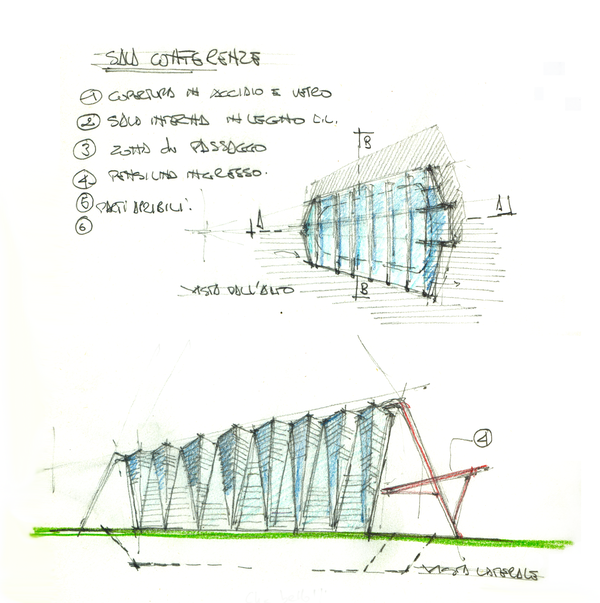 SALA CONFERENZE
1 COPERTURA IN ACCIAIO E VETRO
2 SALA INTERNA IN LEGNO L.L.
3 ZONA di PASSAGGIO
4 PENSILINA INGRESSO.
5 PARTI APRIBILI.
6
B
A A
B
VISTA DALL'ALTO
4
VISTA LATERALE